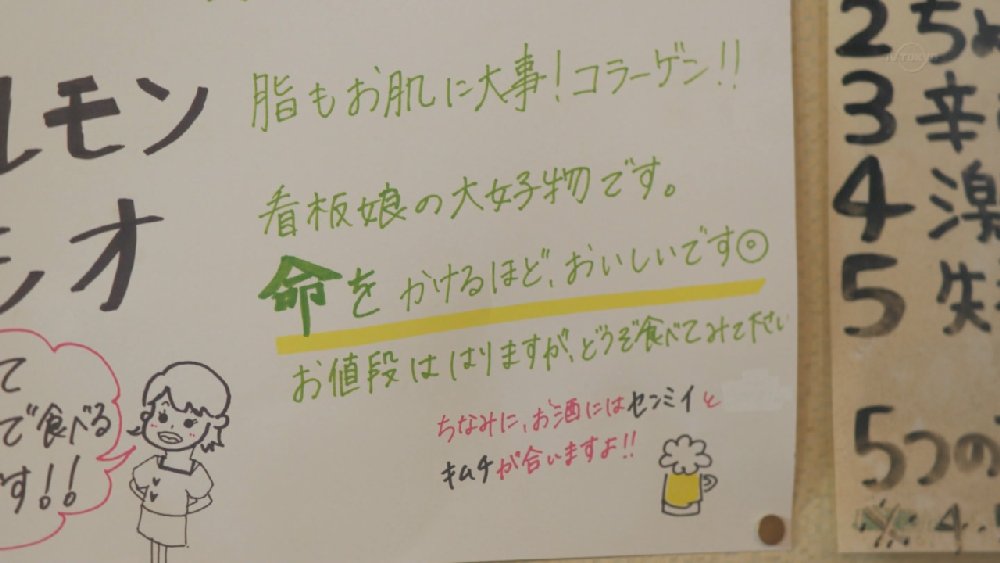 ルモン
シオ
脂もお肌に大事!コラーゲン!!
看板娘の大好物です。
命をかけるほど、おいしいです◎
お値段ははりますが、どうぞ食べてみて下さい
ちなみに、お酒にはセンミイと
キムチが合いますよ!!
て
で食べる
です!!
2 ちぬ
3 辛
4
5 失
5つの
TV TOKYO